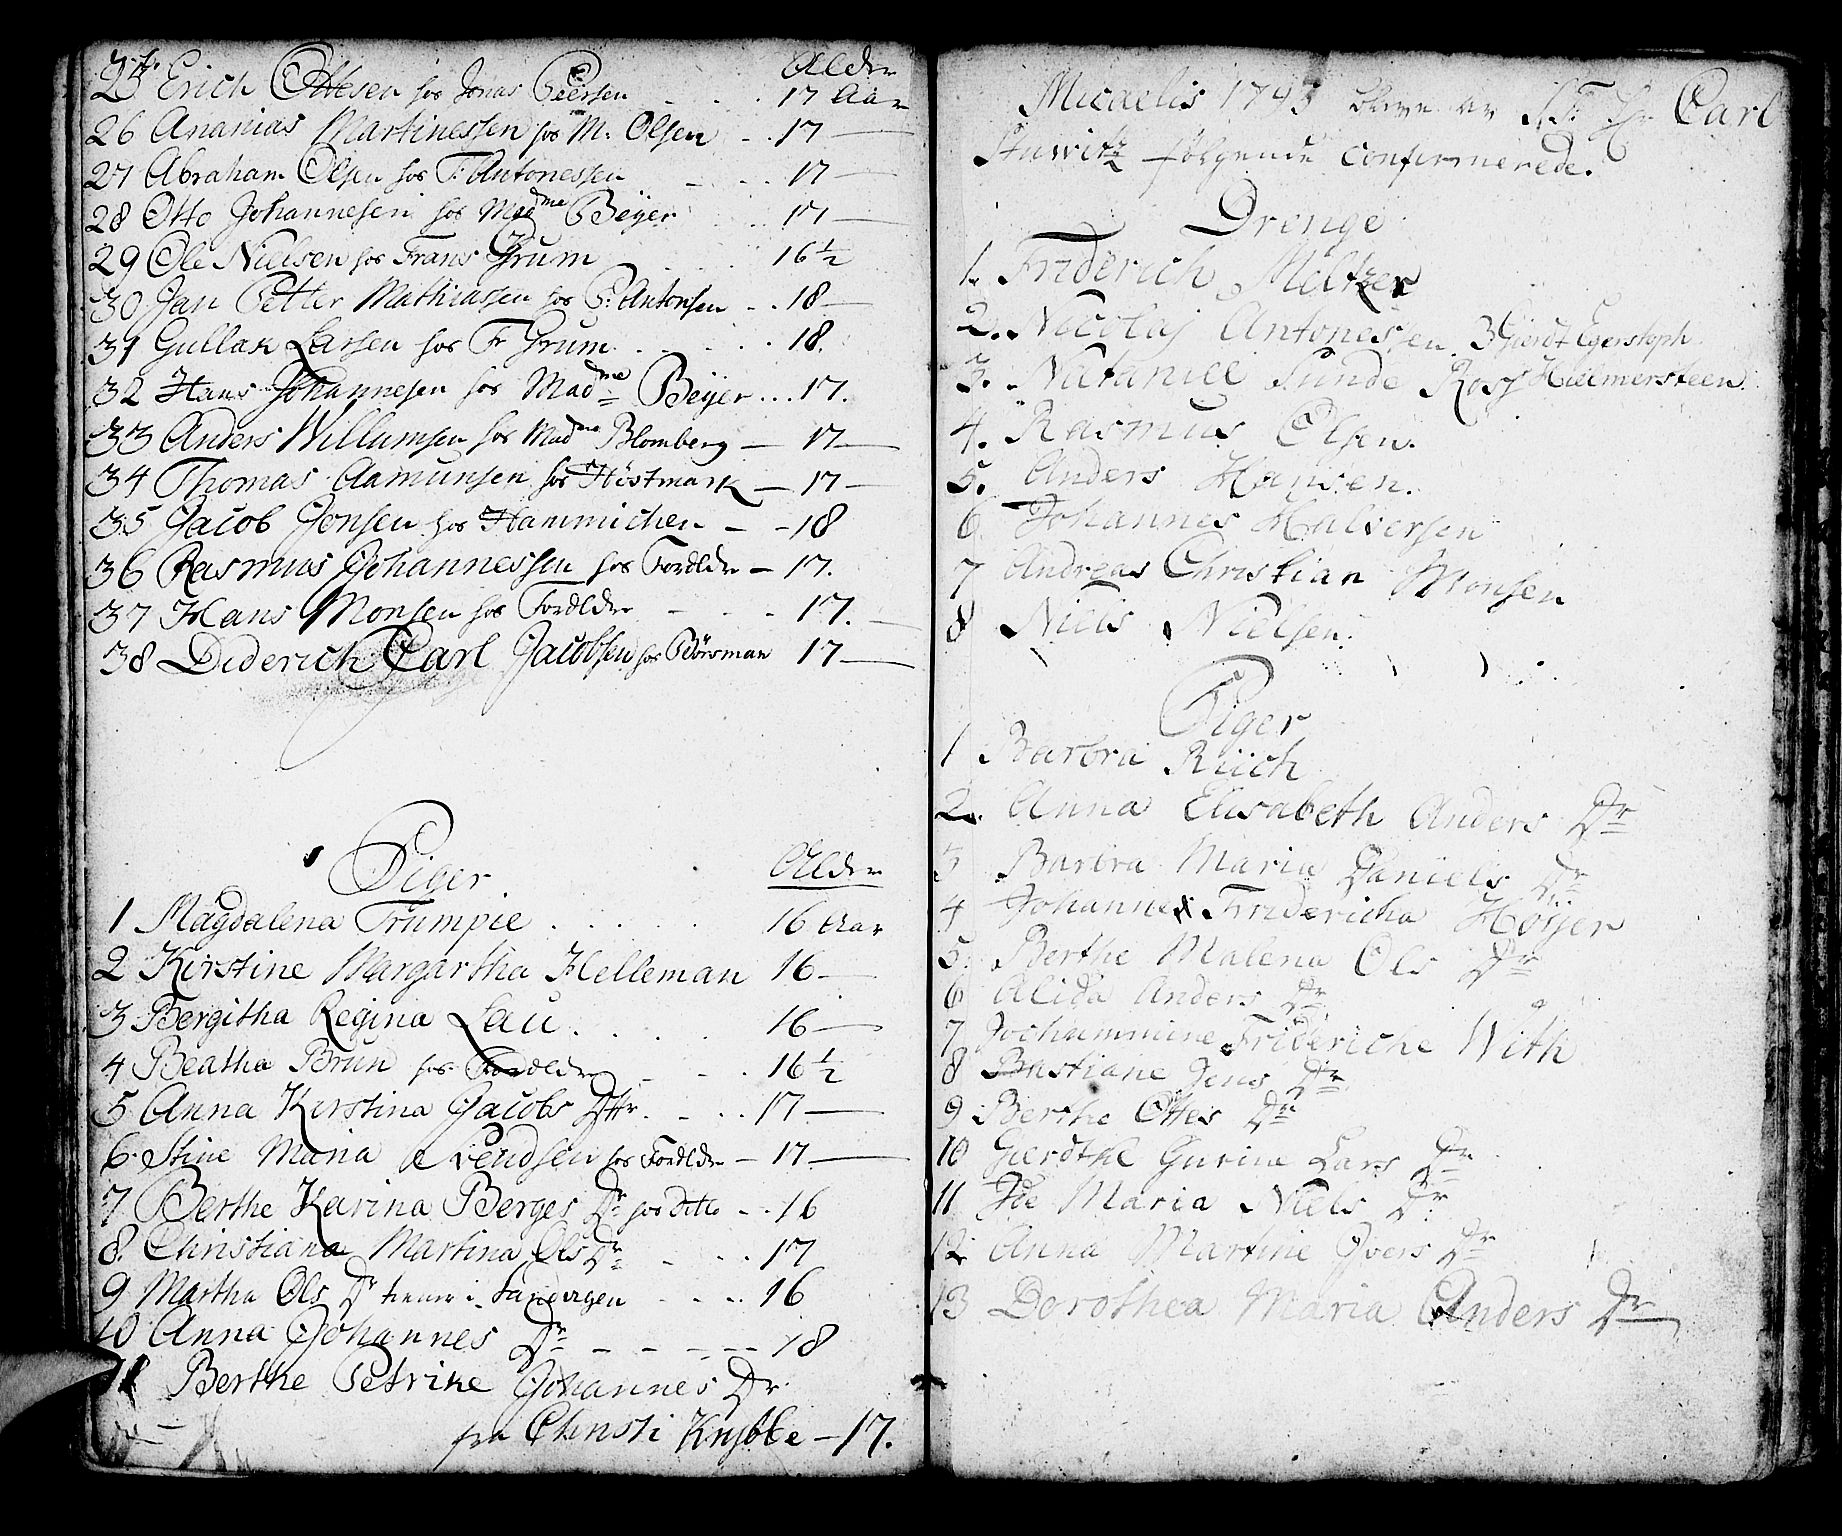 Alder
25 Erich Ottesen hos Jonas Peersen 17 Aar
26 Ananias Martinessen hos M. Olsen 17
27 Abraham Olsen hos T. Antonessen 17
28 Otto Johannesen hos Madme Beyer 17
29 Ole Nielsen hos Frans Grum 16 1/2
30 Jan Petter Mathiassen hos P. Antonsen 18
31 Gullak Larsen hos Fr Grum 18.
32 Hans Johannesen hos Madme Beyer 17.
33 Anders Willumsen hos Madme Blomberg 17
34 Thomas Aamunsen hos Höstmark 17
35 Jacob Jonsen hos Hammichen 18
36 Rasmus Johannessen hos Foreldre 17.
37 Hans Monsen hos Foreldre 17.
38 Diderich Carl Jacobsen hos Börsman 17
Piger Alder
1 Magdalena Trumpie 16 Aar
2 Kirstine Margartha Helleman 16
3 Bergitha Regina Lau 16
4 Beatha Brun hos Foreldre 16 1/2
5 Anna Kirstina Jacobs Dttr. 17
6 Stine Maria Svendsen hos Foreldre 17
7 Berthe Karina Berges Dr hos ditto 16
8. Christiana Martina Ols Dr 17
9 Martha Ols Dr tienner i Sandvigen 16
10 Anna Johannes Dr 18
11 Berthe Petrine Johannes Dr
fra Christi Krybbe 17.
Micaelis 1793 bleve av S.T. Hr Carl
Stuwitz følgende confirmerede.
Drenge
1. Friderich Meltzer
2. Nicolaj Antonessen 3 Gierdt Egerstoph
3. Nataniel Sunde Rosz Hielmersteen
4. Rasmus Olsen.
5. Anders Hansen.
6 Johannes Halversen
7 Andreas Christian Monsen
8 Niels Nielsen.
Piger
1 Barbra Riich
2. Anna Elisabeth Anders Dr
3 Barbra Maria Daniels Dr
4 Johanne Fridericha Höyer
5. Berthe Malena Ols Dr
6 Alida Anders Dr
7 Jochammine Frideriche With
8 Bastiane Jens Dr
9 Berthe Ottes Dr
10 Gierdthe Gurine Lars Dr
11 Ide Maria Niels Dr
12 Anna Martine Ivers Dr
13 Dorothea Maria Anders Dr